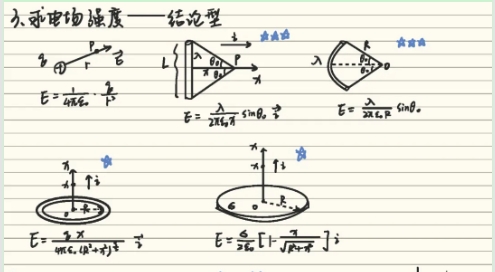 3、求电场强度——结论型
q P r E
E = 1/4πε₀ · q/r²
L λ θ₀ θ₀ x P i x
E = λ/2πε₀x sinθ₀ i
λ R θ₀ θ₀ O
E = λ/2πε₀R sinθ₀
x x i o R
E = qx/4πε₀(R²+x²)^(3/2) i
x x i σ o R
E = σ/2ε₀ [1 - x/√(R²+x²)] i